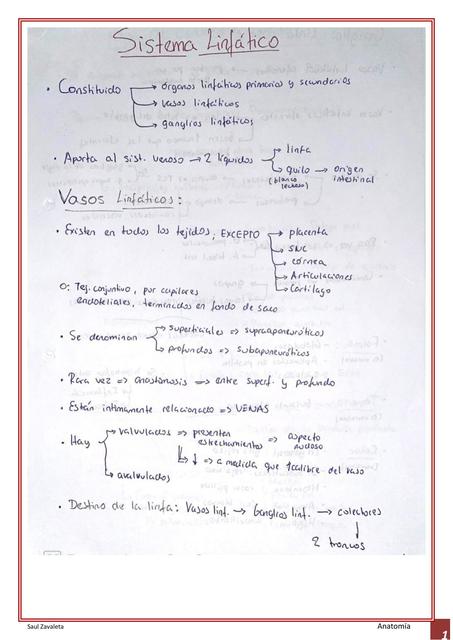 Sistema Linfático
• Constituido → órganos linfáticos primarios y secundarios
→ vasos linfáticos
→ ganglios linfáticos
• Aporta al sist. venoso → 2 líquidos → linfa
→ quilo → origen intestinal
(blanco lechoso)
Vasos Linfáticos:
• Existen en todos los tejidos, EXCEPTO → placenta
→ SNC
→ córnea
→ Articulaciones
→ Cartílago
O: Tej. conjuntivo, por capilares
endoteliales, terminados en fondo de saco
• Se denominan → superficiales => supraaponeuróticos
→ profundos => subaponeuróticos
• Rara vez => anastomosis => entre superf. y profundo
• Están intimamente relacionado => VENAS
• Hay → valvulados => presenten estrechamientos => aspecto nudoso
↓ => a medida que ↑ calibre del vaso
→ avalvulados
• Destino de la linfa: Vasos linf. → Ganglios linf. → colectores
↓
2 troncos
Saul Zavaleta
Anatomía
1